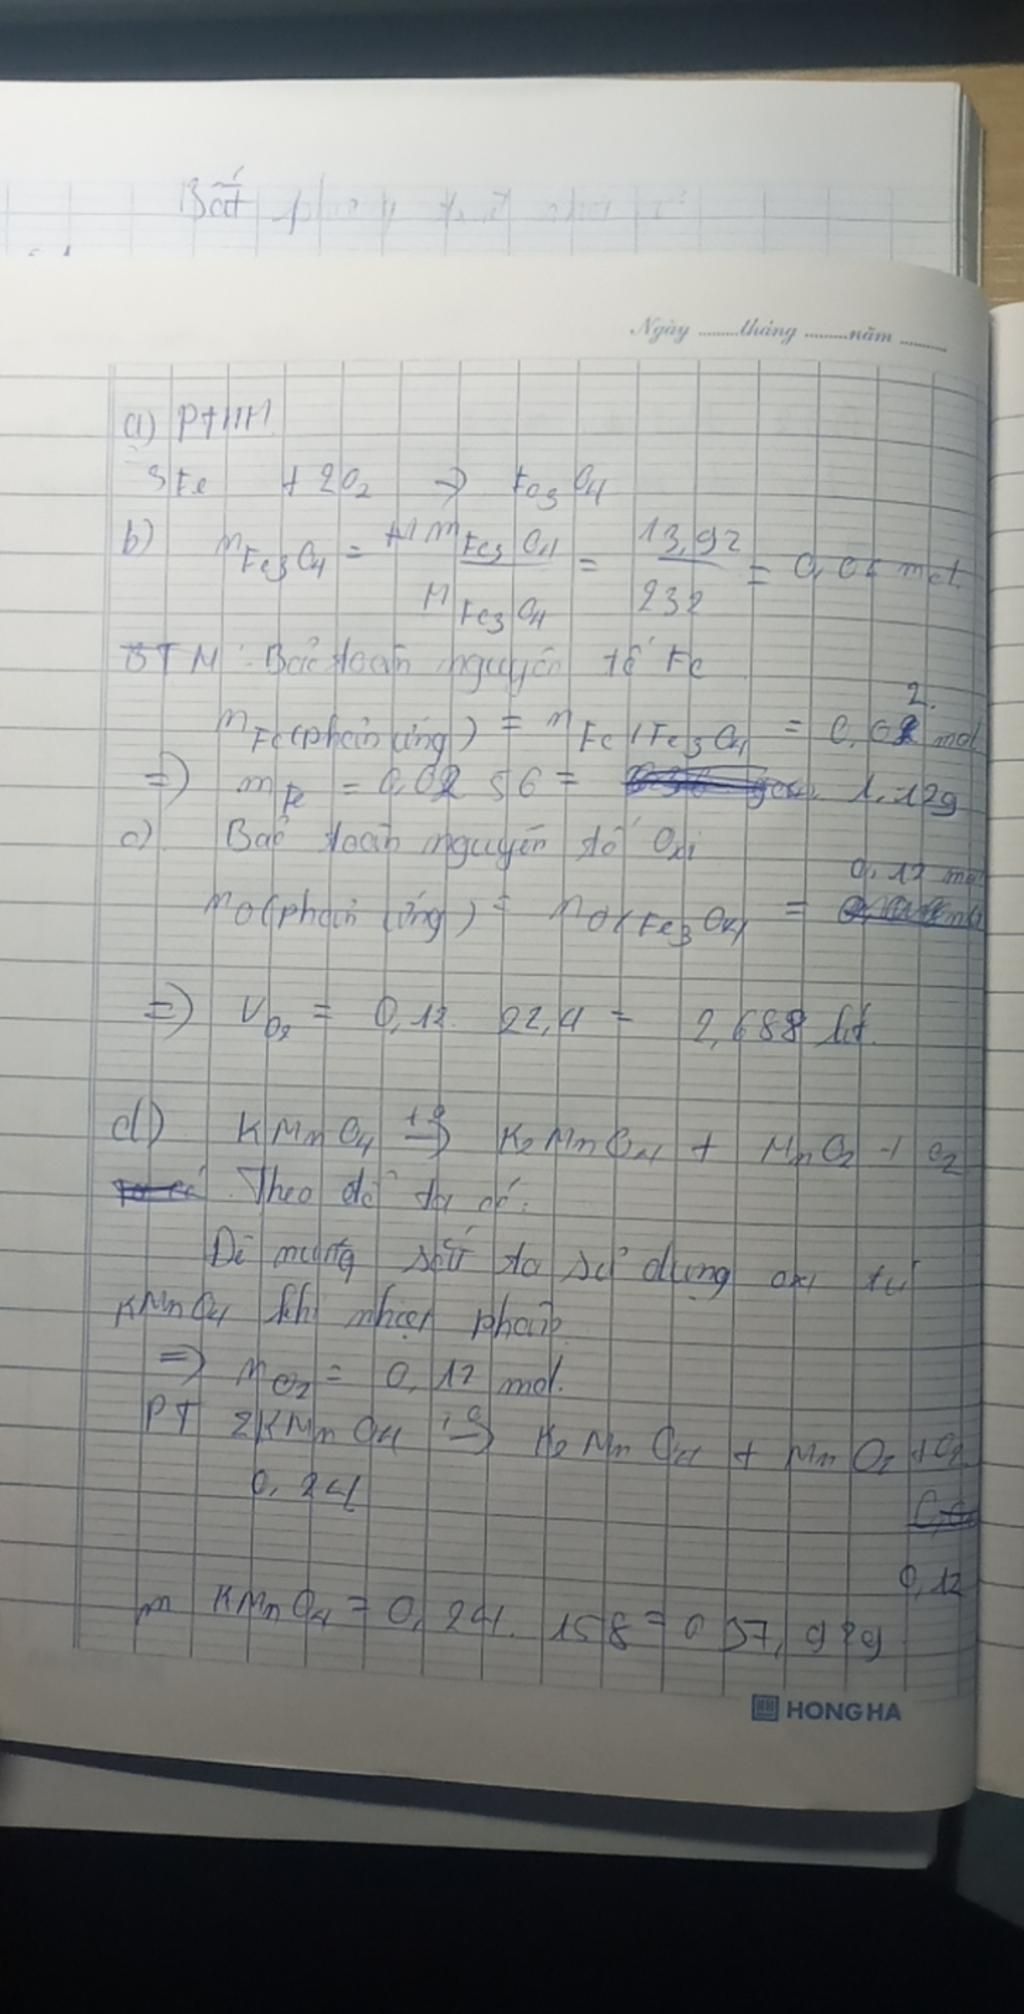 Bất
Ngày ........tháng ........năm ........
a) PTHH
3Fe + 2O2 → Fe3O4
b) nFe3O4 = mFe3O4 / MFe3O4 = 13,92 / 232 = 0,06 mol
BTN: Bảo toàn nguyên tố Fe
nFe(phản ứng) = nFe(Fe3O4) = 0,02 mol
=> mFe = 0,02 56 = 1,12g
c) Bảo toàn nguyên tố Oxi
0,12 mol
nO(phản ứng) = nO(Fe3O4) =
=> VO2 = 0,12. 22,4 = 2,688 lít.
d) KMnO4 t° → K2MnO4 + MnO2 + O2
Theo đề ta có:
Để nung sắt ta sử dụng oxi từ
KMnO4 khi nhiệt phân
=> nO2 = 0,12 mol.
PT 2KMnO4 t° → K2MnO4 + MnO2 + O2
0,24
0,12
m KMnO4 = 0,24. 158 = 37,92g
HONG HA